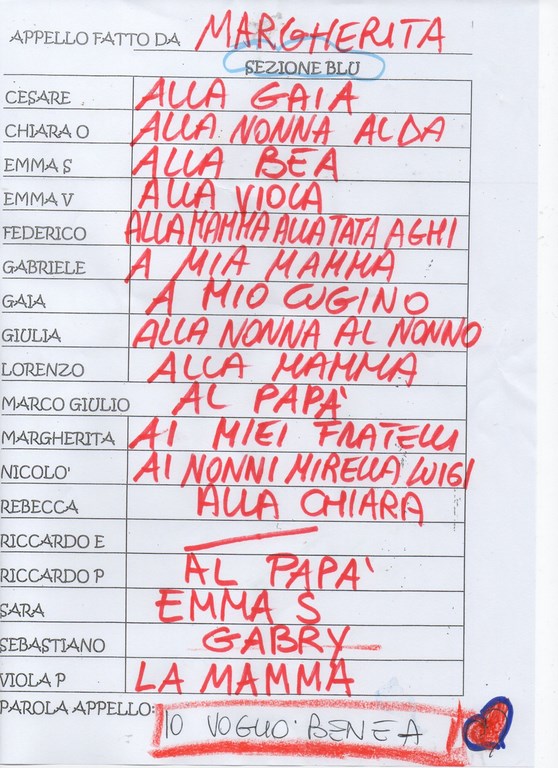 APPELLO FATTO DA MARGHERITA
SEZIONE BLU
CESARE ALLA GAIA
CHIARA O ALLA NONNA ALDA
EMMA S ALLA BEA
EMMA V ALLA VIOLA
FEDERICO ALLA MAMMA ALLA TATA AGHI
GABRIELE A MIA MAMMA
GAIA A MIO CUGINO
GIULIA ALLA NONNA AL NONNO
LORENZO ALLA MAMMA
MARCO GIULIO AL PAPA'
MARGHERITA AI MIEI FRATELLI
NICOLO' AI NONNI MIRELLA LUIGI
REBECCA ALLA CHIARA
RICCARDO E
RICCARDO P AL PAPA'
SARA EMMA S
SEBASTIANO GABRY
VIOLA P LA MAMMA
PAROLA APPELLO: IO VOGLIO BENE A